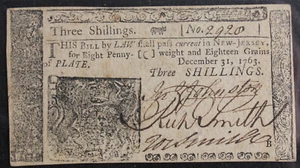 Three Shillings. No. 2928
THIS BILL by LAW shall pass current in NEW-JERSEY,
for Eight Penny- weight and Eighteen Grains
of PLATE. December 31, 1763.
Three SHILLINGS.
Richd Smith
B